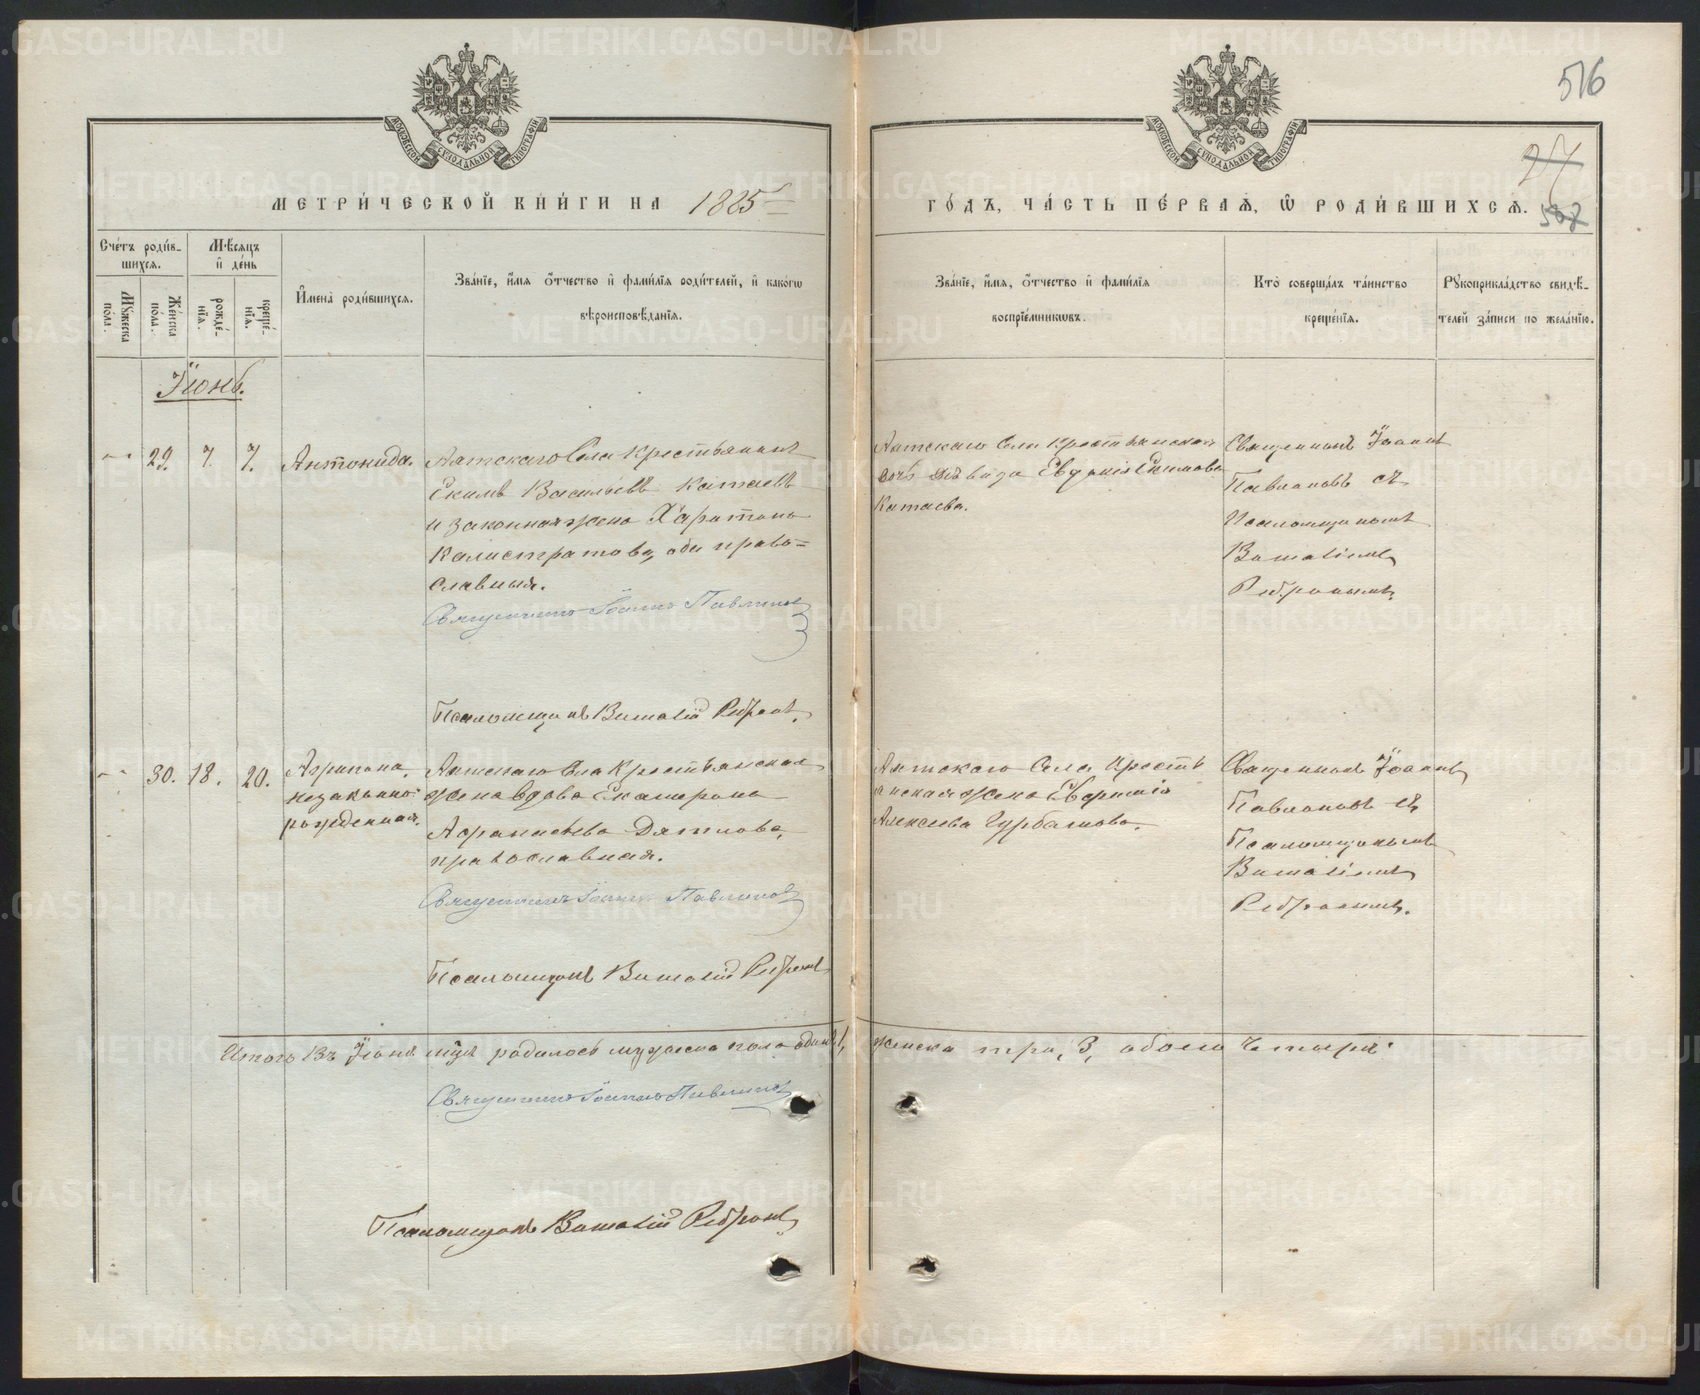 516
27
507
МЕТРИ́ЧЕСКОЙ КНИ́ГИ НА 1885
ГО́ДЪ, ЧА́СТЬ ПЕ́РВАѦ, Ѡ РОДИ́ВШИХСѦ.
Сче́тъ роди́в-
шихсѧ.
Мѣ́сѧцъ
и҆ де́нь
Мꙋ́жеска по́ла.
Же́нска по́ла.
рожде́-
нїѧ.
креще́-
нїѧ.
И҆мена̀ роди́вшихсѧ.
Зва́нїе, и҆́мѧ ѻ҆́тчество и҆ фами́лїѧ роди́телей, и҆ како́гѡ
вѣроисповѣ́данїѧ.
Зва́нїе, и҆́мѧ, ѻ҆́тчество и҆ фами́лїѧ
воспрїе́мникѡвъ.
Кто̀ соверша́лъ та́инство
креще́нїѧ.
Рꙋкоприкла́дство свидѣ́-
телей за́писи по жела́нїю.
Іюнь.
29. 7. 7. Антонида.
Аятскаго Села крестьянинъ
Екимъ Васильевъ Катаевъ
и законная жена Харитина
Калистратова, оби право=
славныя.
Священникъ Іоаннъ Павлиновъ
Псаломщикъ Виталій Ребринъ
Аятскаго Села крестьянская
дочь дѣвица Евдокія Екимова
Катаева.
Священникъ Іоаннъ
Павлиновъ съ
Псаломщикомъ
Виталіемъ
30. 18. 20. Агрипина,
незаконно-
рожденная.
Аятскаго Села Крестьянская
жена вдова Екатерина
Афанасьева Дятлова,
православная.
Священникъ Іоаннъ Павлиновъ
Псаломщикъ Виталій
Аятскаго Села крестья
нская жена
Алексеева
Священникъ Іоаннъ
Павлиновъ съ
Псаломщикомъ
Виталіемъ
Итого въ Іюнѣ мцѣ родилось мужеска пола одинъ 1, женска три, 3, обоего четыре.
Священникъ Іоаннъ Павлиновъ
Псаломщикъ Виталій
METRIKI.GASO-URAL.RU